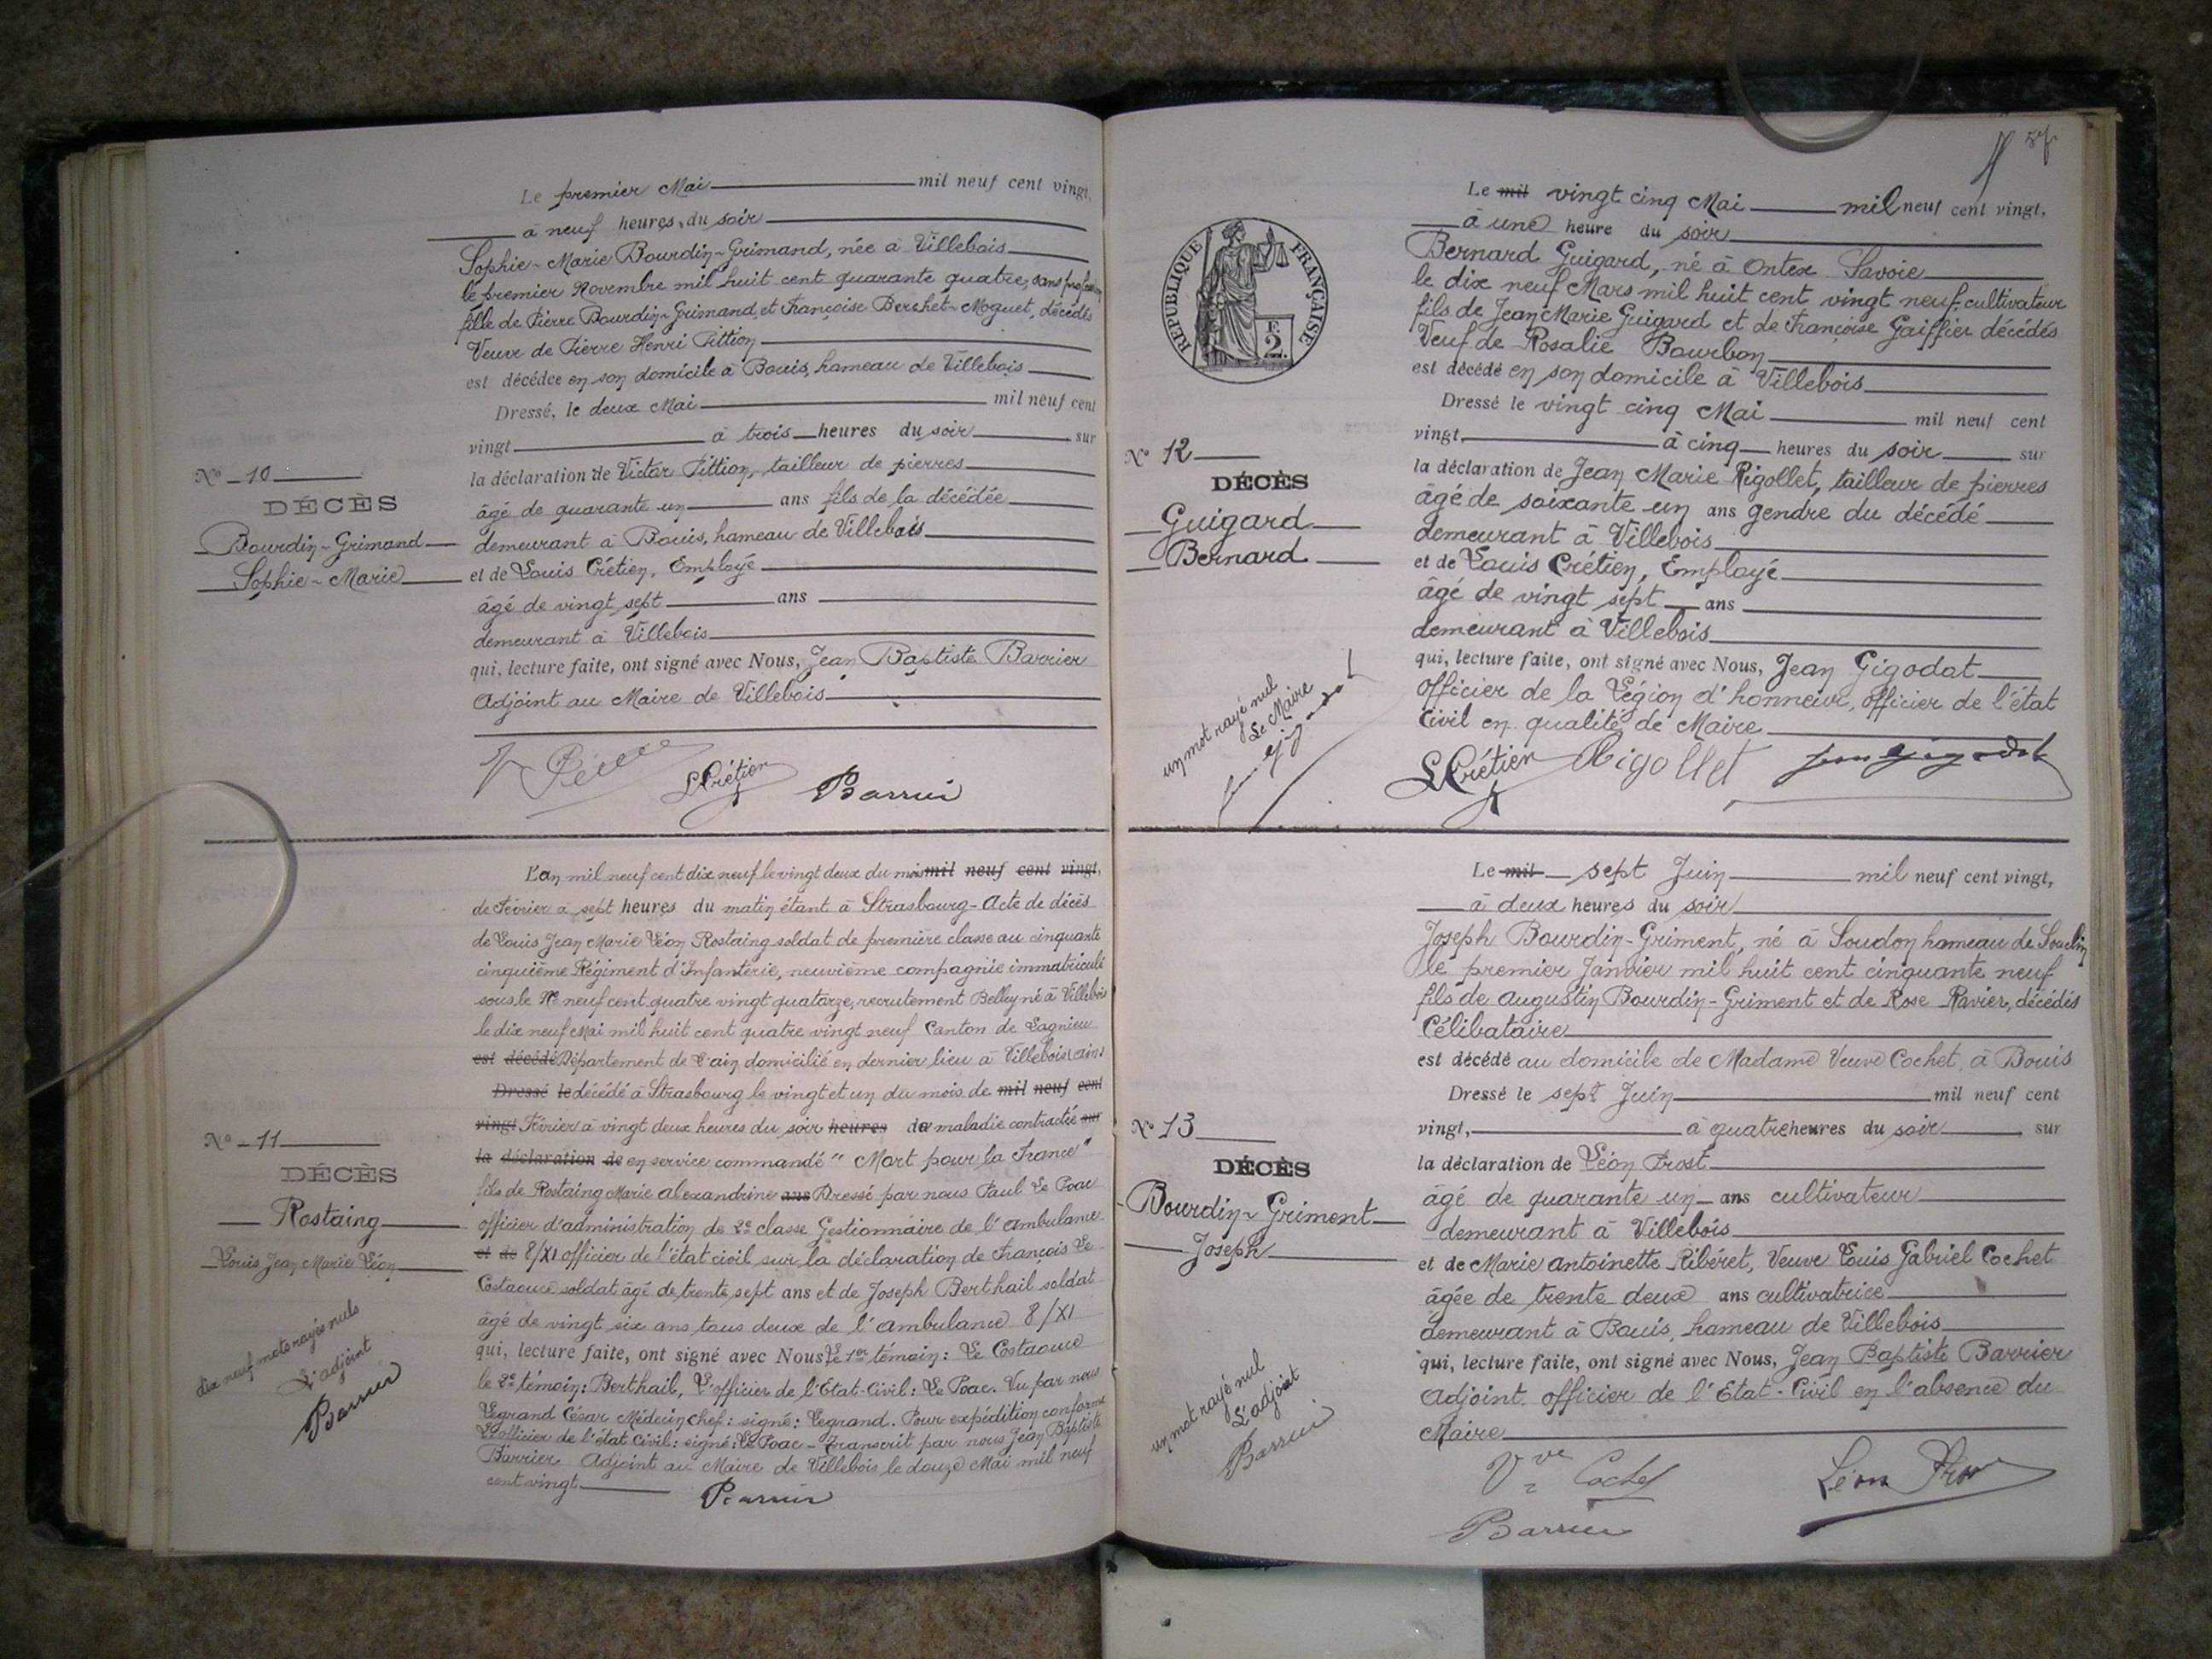 Le premier Mai mil neuf cent vingt,
à neuf heures du soir
Sophie-Marie Bourdin-Grimand, née à Villebois
le premier Novembre mil huit cent quarante quatre, sans profession
fille de Pierre Bourdin-Grimand et Françoise Berchet-Moguet, décédés
Veuve de Pierre Henri Pittion
est décédée en son domicile à Bouis, hameau de Villebois
Dressé, le deux Mai mil neuf cent
vingt à trois heures du soir sur
la déclaration de Victor Pittion, tailleur de pierres
âgé de quarante un ans fils de la décédée
demeurant à Bouis, hameau de Villebois
et de Louis Crétien, Employé
âgé de vingt sept ans
demeurant à Villebois
qui, lecture faite, ont signé avec Nous, Jean Baptiste Barrier
Adjoint au Maire de Villebois
LCrétien Barrier
N° 10
DÉCÈS
Bourdin-Grimand
Sophie-Marie
L'an mil neuf cent dix neuf le vingt deux du mois mil neuf cent vingt,
de Février à sept heures du matin étant à Strasbourg - Acte de décès
de Louis Jean Marie Léon Rostaing soldat de première classe au cinquante
cinquième Régiment d'Infanterie, neuvième compagnie immatriculé
sous le N° neuf cent quatre vingt quatorze, recrutement Belley né à Villebois
le dix neuf Mai mil huit cent quatre vingt neuf Canton de Lagnieu
est décédé Département de l'ain domicilié en dernier lieu à Villebois (ain)
Dressé le décédé à Strasbourg le vingt et un du mois de mil neuf cent
vingt Février à vingt deux heures du soir heures de maladie contractée sur
la déclaration de en service commandé "Mort pour la France"
fils de Rostaing Marie alexandrine ans Dressé par nous Paul Le Poac
officier d'administration de 2e classe Gestionnaire de l'ambulance
et de 8/XI officier de l'état civil, sur la déclaration de François Le
Costaouec soldat âgé de trente sept ans et de Joseph Berthail soldat
âgé de vingt six ans tous deux de l'ambulance 8/XI
qui, lecture faite, ont signé avec Nous Le 1er témoin: Le Costaouec
le 2e témoin: Berthail, L'officier de l'Etat-Civil: Le Poac. Vu par nous
Legrand César Médecin chef: signé: Legrand. Pour expédition conforme
L'officier de l'état civil: signé: Le Poac - Transcrit par nous Jean Baptiste
Barrier Adjoint au Maire de Villebois le douze Mai mil neuf
cent vingt
Barrier
N° 11
DÉCÈS
Rostaing
Louis Jean Marie Léon
dix neuf mots rayés nuls
L'adjoint
Barrier
RÉPUBLIQUE FRANÇAISE
2F.
Le mil vingt cinq Mai mil neuf cent vingt,
à une heure du soir
Bernard Guigard, né à Ontex Savoie
le dix neuf Mars mil huit cent vingt neuf, cultivateur
fils de Jean Marie Guigard et de Françoise Gaiffier décédés
Veuf de Rosalie Bourbon
est décédé en son domicile à Villebois
Dressé le vingt cinq Mai mil neuf cent
vingt, à cinq heures du soir sur
la déclaration de Jean Marie Rigollet, tailleur de pierres
âgé de soixante un ans gendre du décédé
demeurant à Villebois
et de Louis Crétien, Employé
âgé de vingt sept ans
demeurant à Villebois
qui, lecture faite, ont signé avec Nous, Jean Gigodat
officier de la Légion d'honneur, officier de l'état
Civil en qualité de Maire
LCrétien Rigollet Jean Gigodat
N° 12
DÉCÈS
Guigard
Bernard
un mot rayé nul
Le Maire
Jean Gigodat
Le mil sept Juin mil neuf cent vingt,
à deux heures du soir
Joseph Bourdin-Griment, né à Soudon hameau de Souclin
le premier Janvier mil huit cent cinquante neuf
fils de Augustin Bourdin-Griment et de Rose Ravier, décédés
Célibataire
est décédé au domicile de Madame Veuve Cochet, à Bouis
Dressé le sept Juin mil neuf cent
vingt, à quatre heures du soir, sur
la déclaration de Léon Prost
âgé de quarante un ans cultivateur
demeurant à Villebois
et de Marie Antoinette Ribéret, Veuve Louis Gabriel Cochet
âgée de trente deux ans cultivatrice
demeurant à Bouis, hameau de Villebois
qui, lecture faite, ont signé avec Nous, Jean Baptiste Barrier
Adjoint officier de l'Etat-Civil en l'absence du
Maire
Vve Cochet Léon Prost
Barrier
N° 13
DÉCÈS
Bourdin-Griment
Joseph
un mot rayé nul
L'adjoint
Barrier